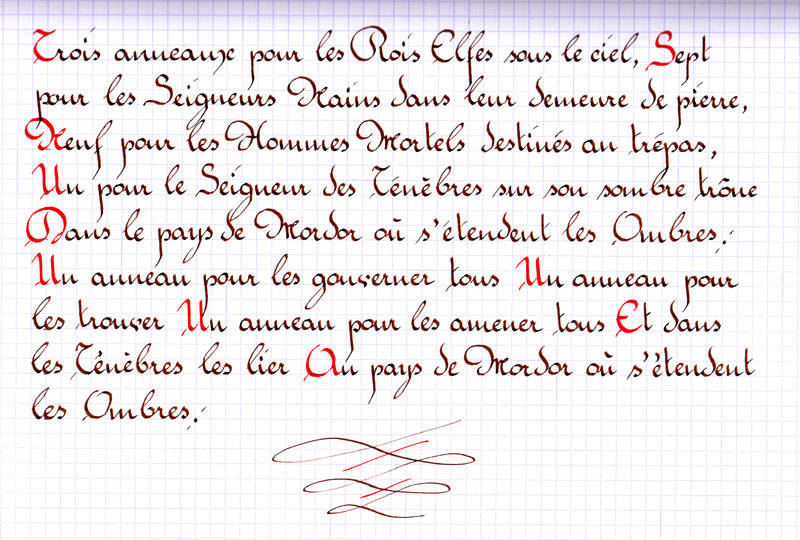 Trois anneaux pour les Rois Elfes sous le ciel, Sept
pour les Seigneurs Nains dans leur demeure de pierre,
Neuf pour les Hommes Mortels destinés au trépas,
Un pour le Seigneur des Ténèbres sur son sombre trône
Dans le pays de Mordor où s'étendent les Ombres.
Un anneau pour les gouverner tous Un anneau pour
les trouver Un anneau pour les amener tous Et dans
les Ténèbres les lier Au pays de Mordor où s'étendent
les Ombres.